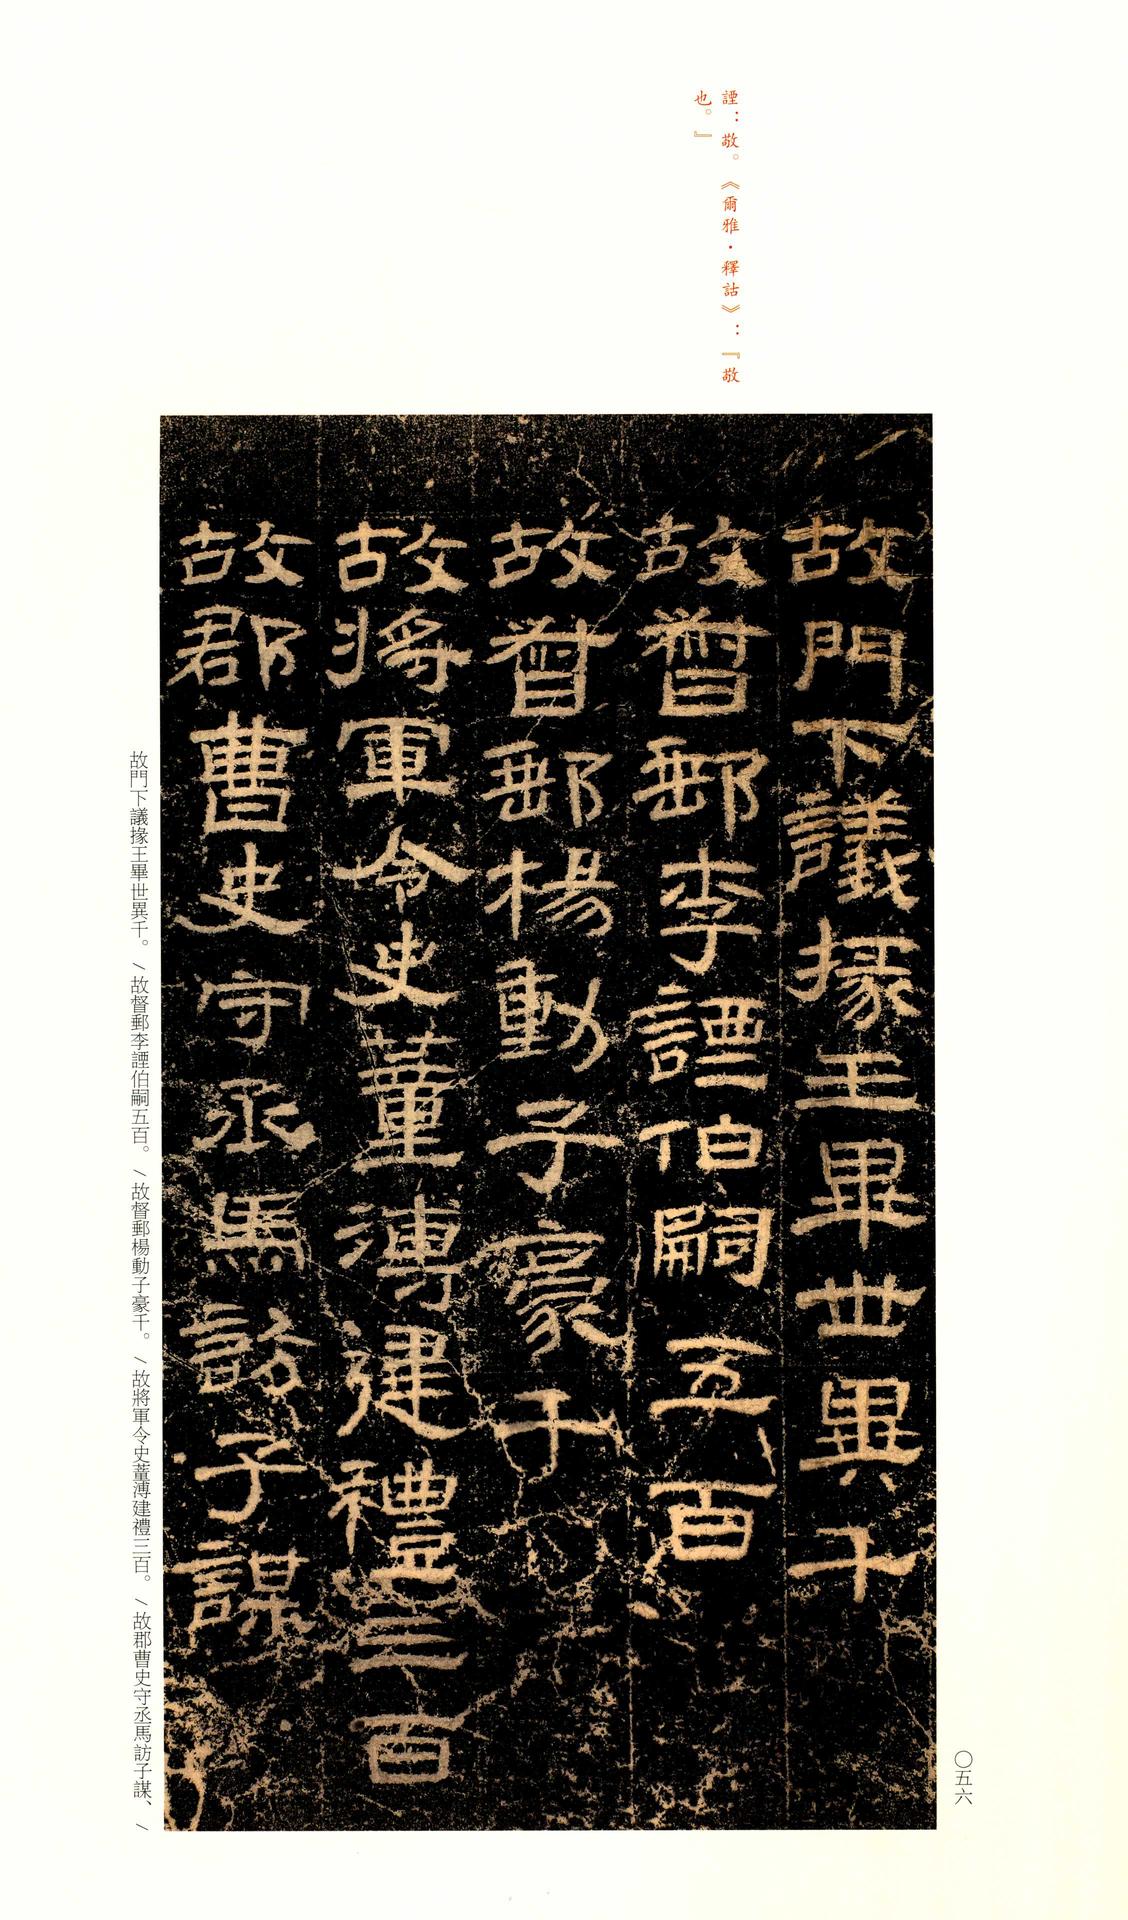 諲：敬。《爾雅·釋詁》：『敬
也。』
故門下議掾王畢世異千
故督郵李諲伯嗣五百
故督郵楊動子豪千
故將軍令史董溥建禮三百
故郡曹史守丞馬訪子謀
故門下議掾王畢世異千。/故督郵李諲伯嗣五百。/故督郵楊動子豪千。/故將軍令史董溥建禮三百。/故郡曹史守丞馬訪子謀、/
〇五六